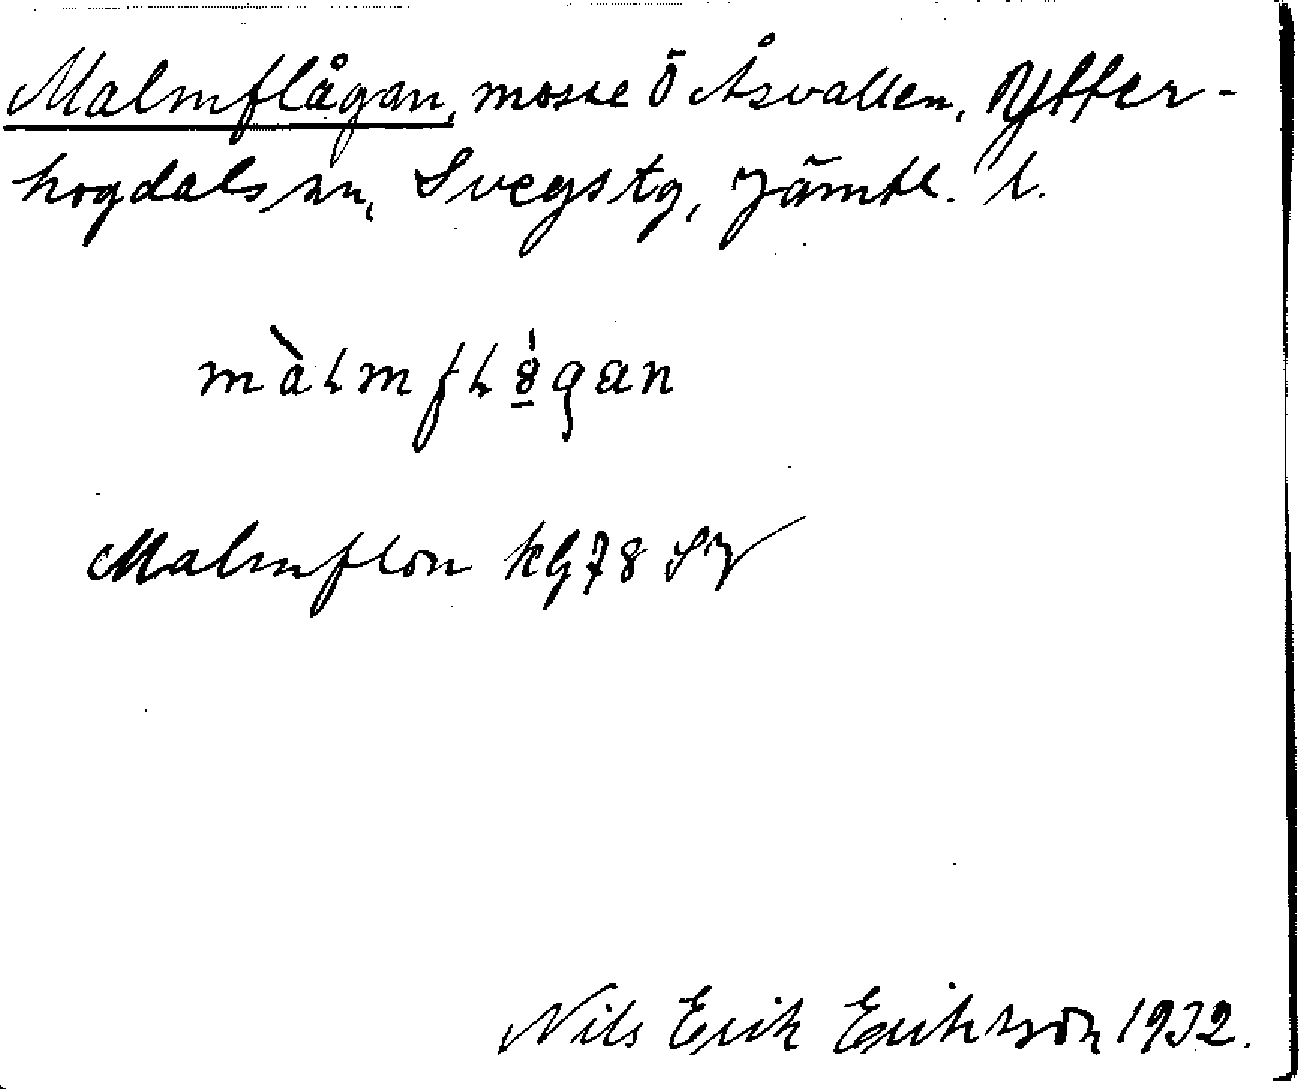 Malmflågan, mosse Ö Åsvallen, Ytter-
hogdals sn, Svegs tg, Jämtl. l.
màlmflågan
Malmflon kbl 78 SV
Nils Erik Erikson 1932.